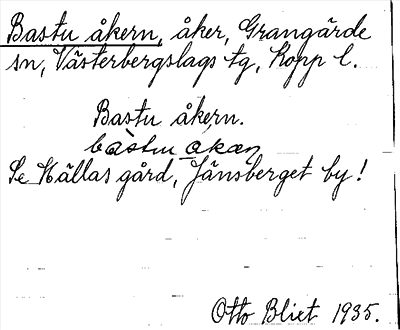 Bastu åkern, åker, Grangärde
sn, Västerbergslags tg, Kopp l.
Bastu åkern.
bàstu åkæn
Se Källas gård, Jänsberget by!
Otto Blixt 1935.